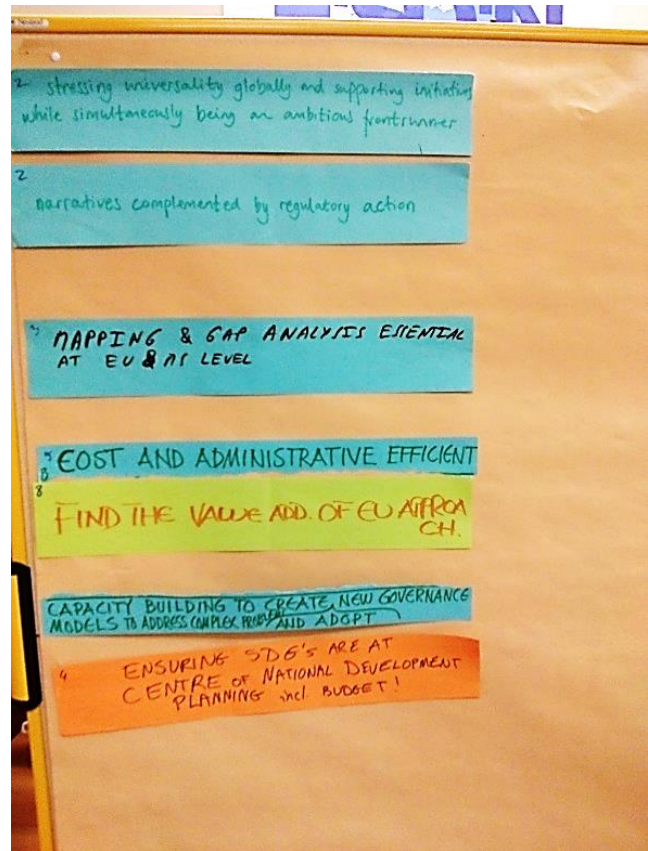 2 stressing universality globally and supporting initiatives
while simultaneously being an ambitious frontrunner
2
narratives complemented by regulatory action
3 MAPPING & GAP ANALYSIS ESSENTIAL
AT EU & MS LEVEL
COST AND ADMINISTRATIVE EFFICIENT
8
FIND THE VALUE ADD. OF EU APPROA
CH.
CAPACITY BUILDING TO CREATE NEW GOVERNANCE
MODELS TO ADDRESS COMPLEX PROBLEMS AND ADOPT
4 ENSURING SDG's ARE AT
CENTRE OF NATIONAL DEVELOPMENT
PLANNING incl. BUDGET!